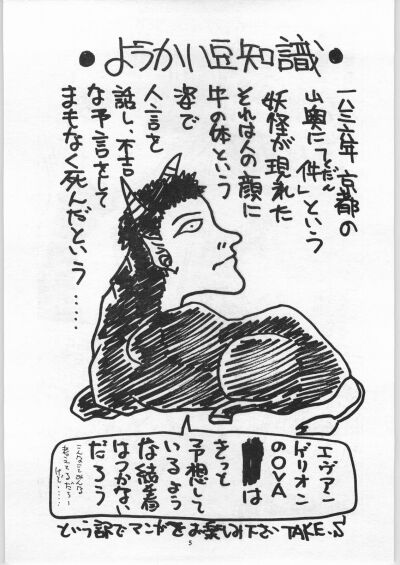 ● ようかい豆知識 ●
一八三六年 京都の
山奥に「件」という
くだん
妖怪が現れた
それは人の顔に
牛の体という
姿で
人言を
話し、不吉
な予言をして
まもなく死んだという……
エヴァン
ゲリオン
のOVA
は
きっと
予想して
いるよう
な結着
はつかない
だろう
こんなことみんな
考えてるだろー
けど……
という訳でマンガをお楽しみ下さい TAKE.S
5